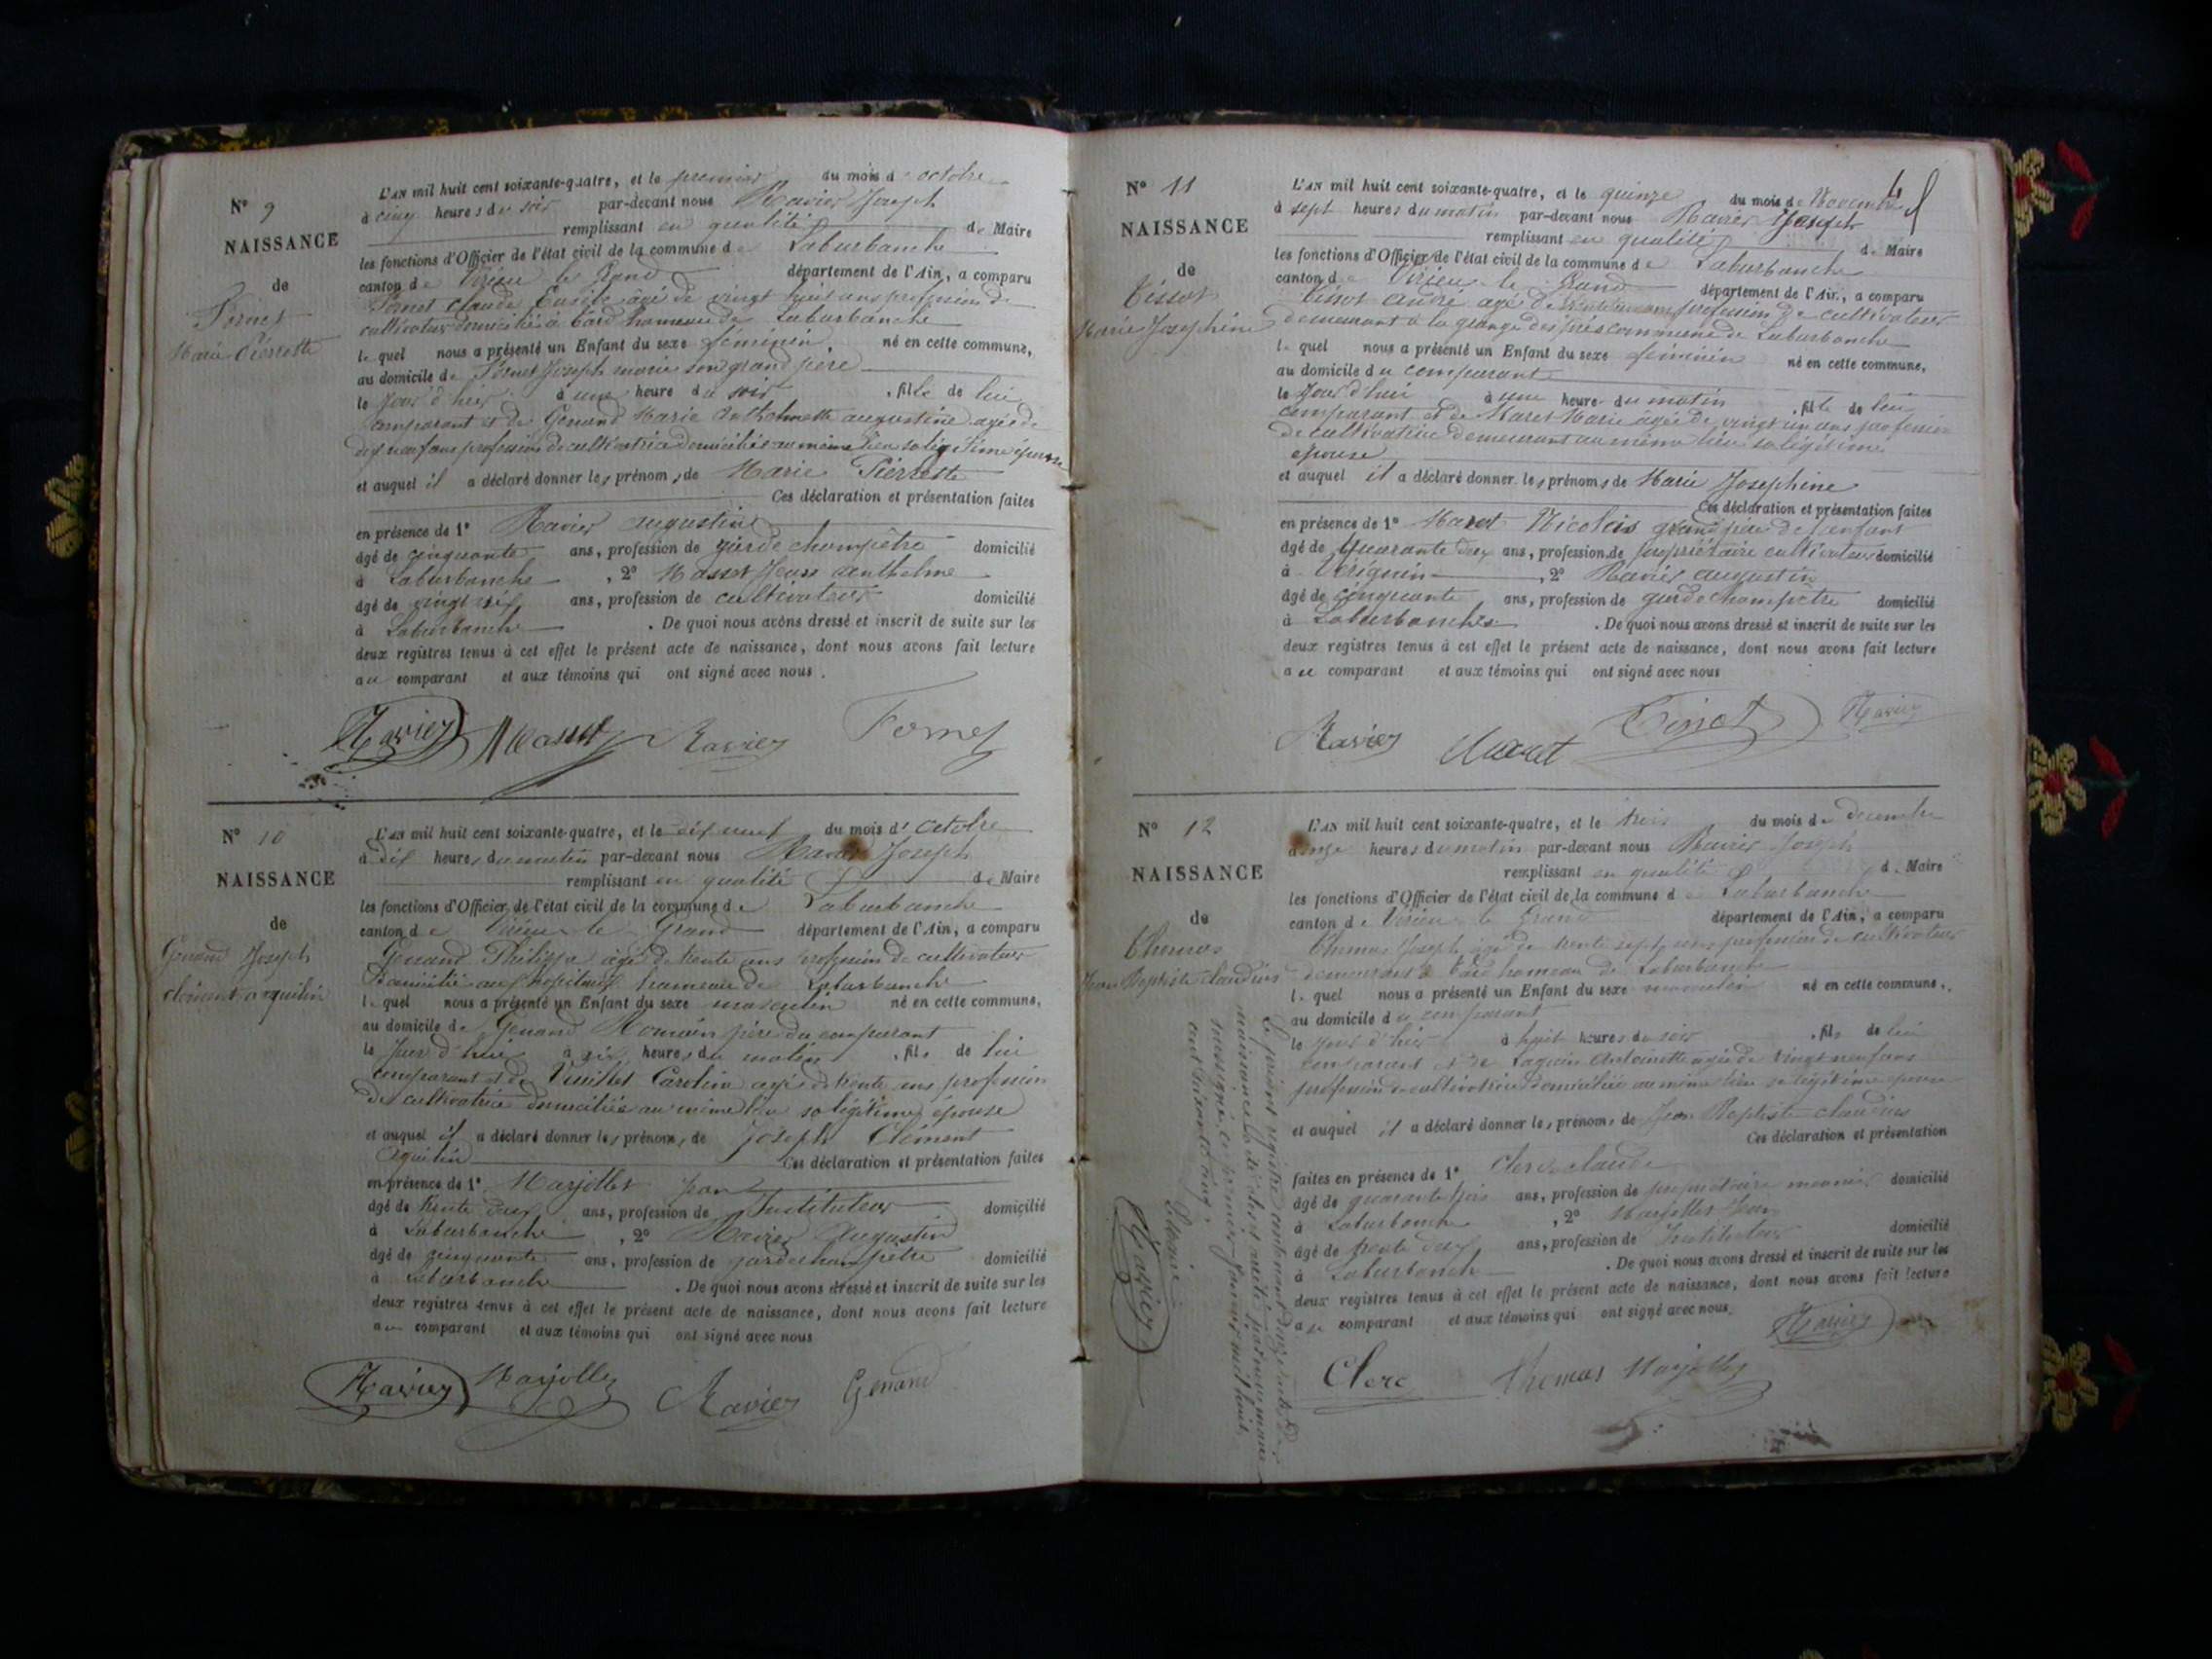 N° 9
NAISSANCE
de
Fornet
Marie Pierrette
L'AN mil huit cent soixante-quatre, et le premier du mois d'octobre
à cinq heures du soir par-devant nous Ravier Joseph
remplissant en qualité de Maire
les fonctions d'Officier de l'état civil de la commune de Laburbanche
canton de Virieu le Grand département de l'Ain, a comparu
Fornet Claude Eusèbe âgé de vingt huit ans profession de
cultivateur domicilié à Bard hameau de Laburbanche
lequel nous a présenté un Enfant du sexe féminin, né en cette commune,
au domicile de Fornet Joseph marie son grand père
le jour d'hier à une heure du soir, fille de lui
comparant et de Genand Marie Anthelmette augustine agée de
dix neuf ans profession de cultivatrice domiciliée au même lieu sa légitime épouse
et auquel il a déclaré donner les prénoms de Marie Pierrette
Ces déclaration et présentation faites
en présence de 1° Ravier augustin
âgé de cinquante ans, profession de garde champêtre domicilié
à Laburbanche, 2° Masset Jean anthelme
âgé de vingt six ans, profession de cultivateur domicilié
à Laburbanche. De quoi nous avons dressé et inscrit de suite sur les
deux registres tenus à cet effet le présent acte de naissance, dont nous avons fait lecture
au comparant et aux témoins qui ont signé avec nous.
Ravier Masset Ravier Fornet
N° 10
NAISSANCE
de
Genand Joseph
clément aquilin
L'AN mil huit cent soixante-quatre, et le dix neuf du mois d'Octobre
à dix heures du matin par-devant nous Ravier Joseph
remplissant en qualité de Maire
les fonctions d'Officier de l'état civil de la commune de Laburbanche
canton de Virieu le Grand département de l'Ain, a comparu
Genand Philippe agé de trente ans profession de cultivateur
domicilié aux hopitaux hameau de Laburbanche
lequel nous a présenté un Enfant du sexe masculin né en cette commune,
au domicile de Genand Romain père du comparant
le jour d'hui à six heures du matin, fils de lui
comparant et de Vuillet Caroline agée de trente ans profession
de cultivatrice domiciliée au même lieu sa légitime épouse
et auquel il a déclaré donner les prénoms de Joseph Clément
Aquilin Ces déclaration et présentation faites
en présence de 1° Marjollet Jean
âgé de trente deux ans, profession de Instituteur domicilié
à Laburbanche, 2° Ravier Augustin
âgé de cinquante ans, profession de garde champêtre domicilié
à Laburbanche. De quoi nous avons dressé et inscrit de suite sur les
deux registres tenus à cet effet le présent acte de naissance, dont nous avons fait lecture
au comparant et aux témoins qui ont signé avec nous
Ravier Marjollet Ravier Genand
4
N° 11
NAISSANCE
de
Tissot
Marie Josephine
L'AN mil huit cent soixante-quatre, et le quinze du mois de Novembre
à sept heures du matin par-devant nous Ravier Joseph
remplissant en qualité de Maire
les fonctions d'Officier de l'état civil de la commune de Laburbanche
canton de Virieu le Grand département de l'Ain, a comparu
Tissot andré agé de ans profession de cultivateur
demeurant à la grange des prés commune de Laburbanche
lequel nous a présenté un Enfant du sexe féminin né en cette commune,
au domicile du comparant
le jour d'hui à une heure du matin, fille de lui
comparant et de Maret Marie agée de vingt un ans profession
de cultivatrice demeurant au même lieu sa légitime
épouse
et auquel il a déclaré donner les prénoms de Marie Josephine
Ces déclaration et présentation faites
en présence de 1° Maret Nicolas grand père de l'enfant
âgé de Quarante deux ans, profession de propriétaire cultivateur domicilié
à Vérignin, 2° Ravier augustin
âgé de cinquante ans, profession de garde champêtre domicilié
à Laburbanche. De quoi nous avons dressé et inscrit de suite sur les
deux registres tenus à cet effet le présent acte de naissance, dont nous avons fait lecture
au comparant et aux témoins qui ont signé avec nous
Ravier Maret Tissot Ravier
N° 12
NAISSANCE
de
Thomas
Jean Baptiste claudius
L'AN mil huit cent soixante-quatre, et le trois du mois de decembre
à onze heures du matin par-devant nous Ravier Joseph
remplissant en qualité de Maire
les fonctions d'Officier de l'état civil de la commune de Laburbanche
canton de Virieu le Grand département de l'Ain, a comparu
Thomas Joseph agé de trente sept ans profession de cultivateur
demeurant à Bard hameau de Laburbanche
lequel nous a présenté un Enfant du sexe masculin né en cette commune,
au domicile du comparant
le jour d'hier à huit heures du soir, fils de lui
comparant et de Antoinette agée de vingt neuf ans
profession de cultivatrice domiciliée au même lieu sa légitime épouse
et auquel il a déclaré donner les prénoms de Jean Baptiste claudius
Ces déclaration et présentation
faites en présence de 1° Clerc claude
âgé de quarante trois ans, profession de propriétaire meunier domicilié
à Laburbanche, 2° Marjollet Jean
âgé de trente deux ans, profession de Instituteur domicilié
à Laburbanche. De quoi nous avons dressé et inscrit de suite sur les
deux registres tenus à cet effet le présent acte de naissance, dont nous avons fait lecture
au comparant et aux témoins qui ont signé avec nous.
Ravier
Clerc Thomas Marjollet
Le présent registre contenant douze actes de
naissances a été clos et arrêté par nous maire
soussigné, ce premier Janvier mil huit
cent soixante cinq.
Le maire
Ravier